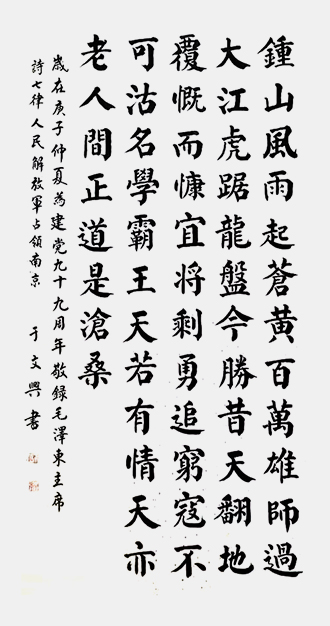 鍾山風雨起蒼黄百萬雄師過
大江虎踞龍盤今勝昔天翻地
覆慨而慷宜将剩勇追窮寇不
可沽名學霸王天若有情天亦
老人間正道是滄桑
歲在庚子仲夏為建党九十九周年敬録毛澤東主席
詩七律人民解放軍占領南京
于文興書